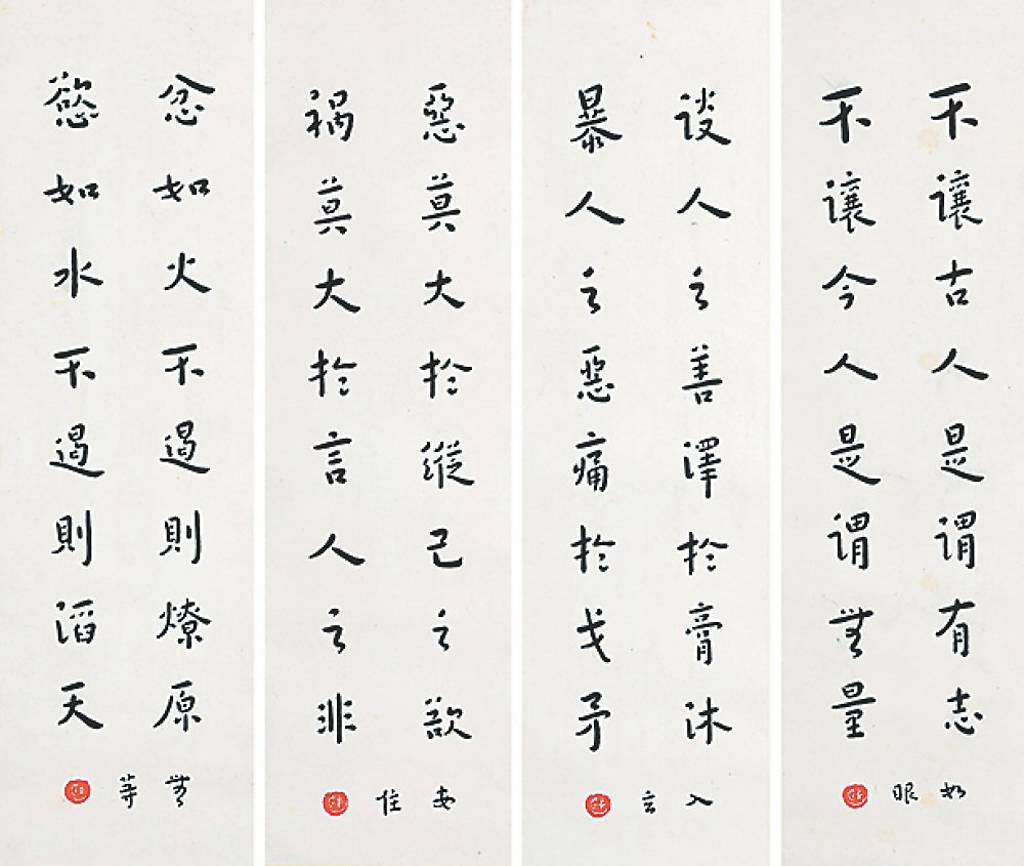 不讓古人是謂有志
不讓今人是謂無量
如眼
談人之善澤於膏沐
暴人之惡痛於戈矛
入玄
惡莫大於縱己之欲
禍莫大於言人之非
安住
忿如火不遏則燎原
慾如水不遏則滔天
無等